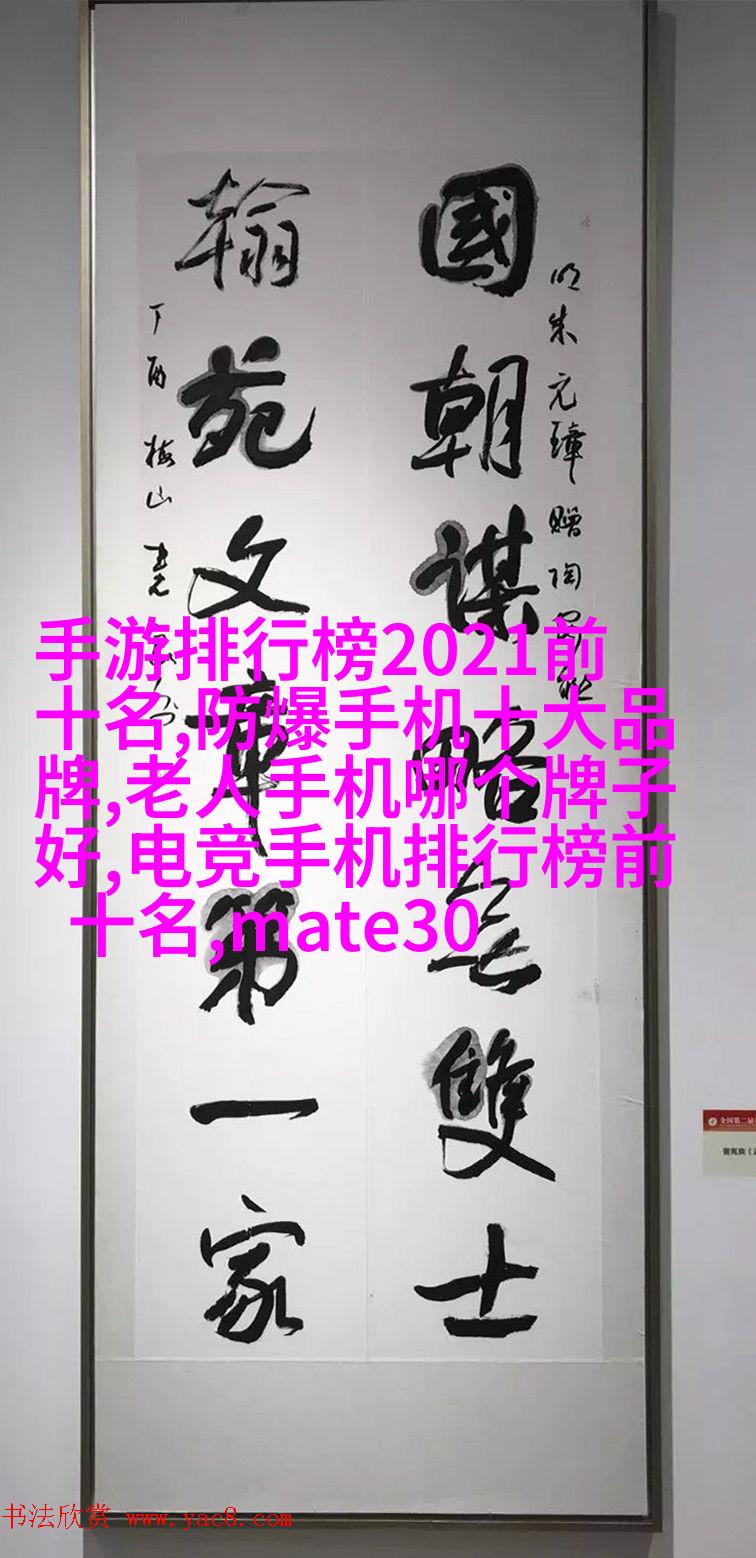 國朝謀略無雙士
明朱元璋贈陶安聯
翰苑文章第一家
丁酉 梅山
手游排行榜2021前
十名,防爆手机十大品
牌,老人手机哪个牌子
好,电竞手机排行榜前
十名,mate30
全国第二届
书法欣赏 www.yac8.com